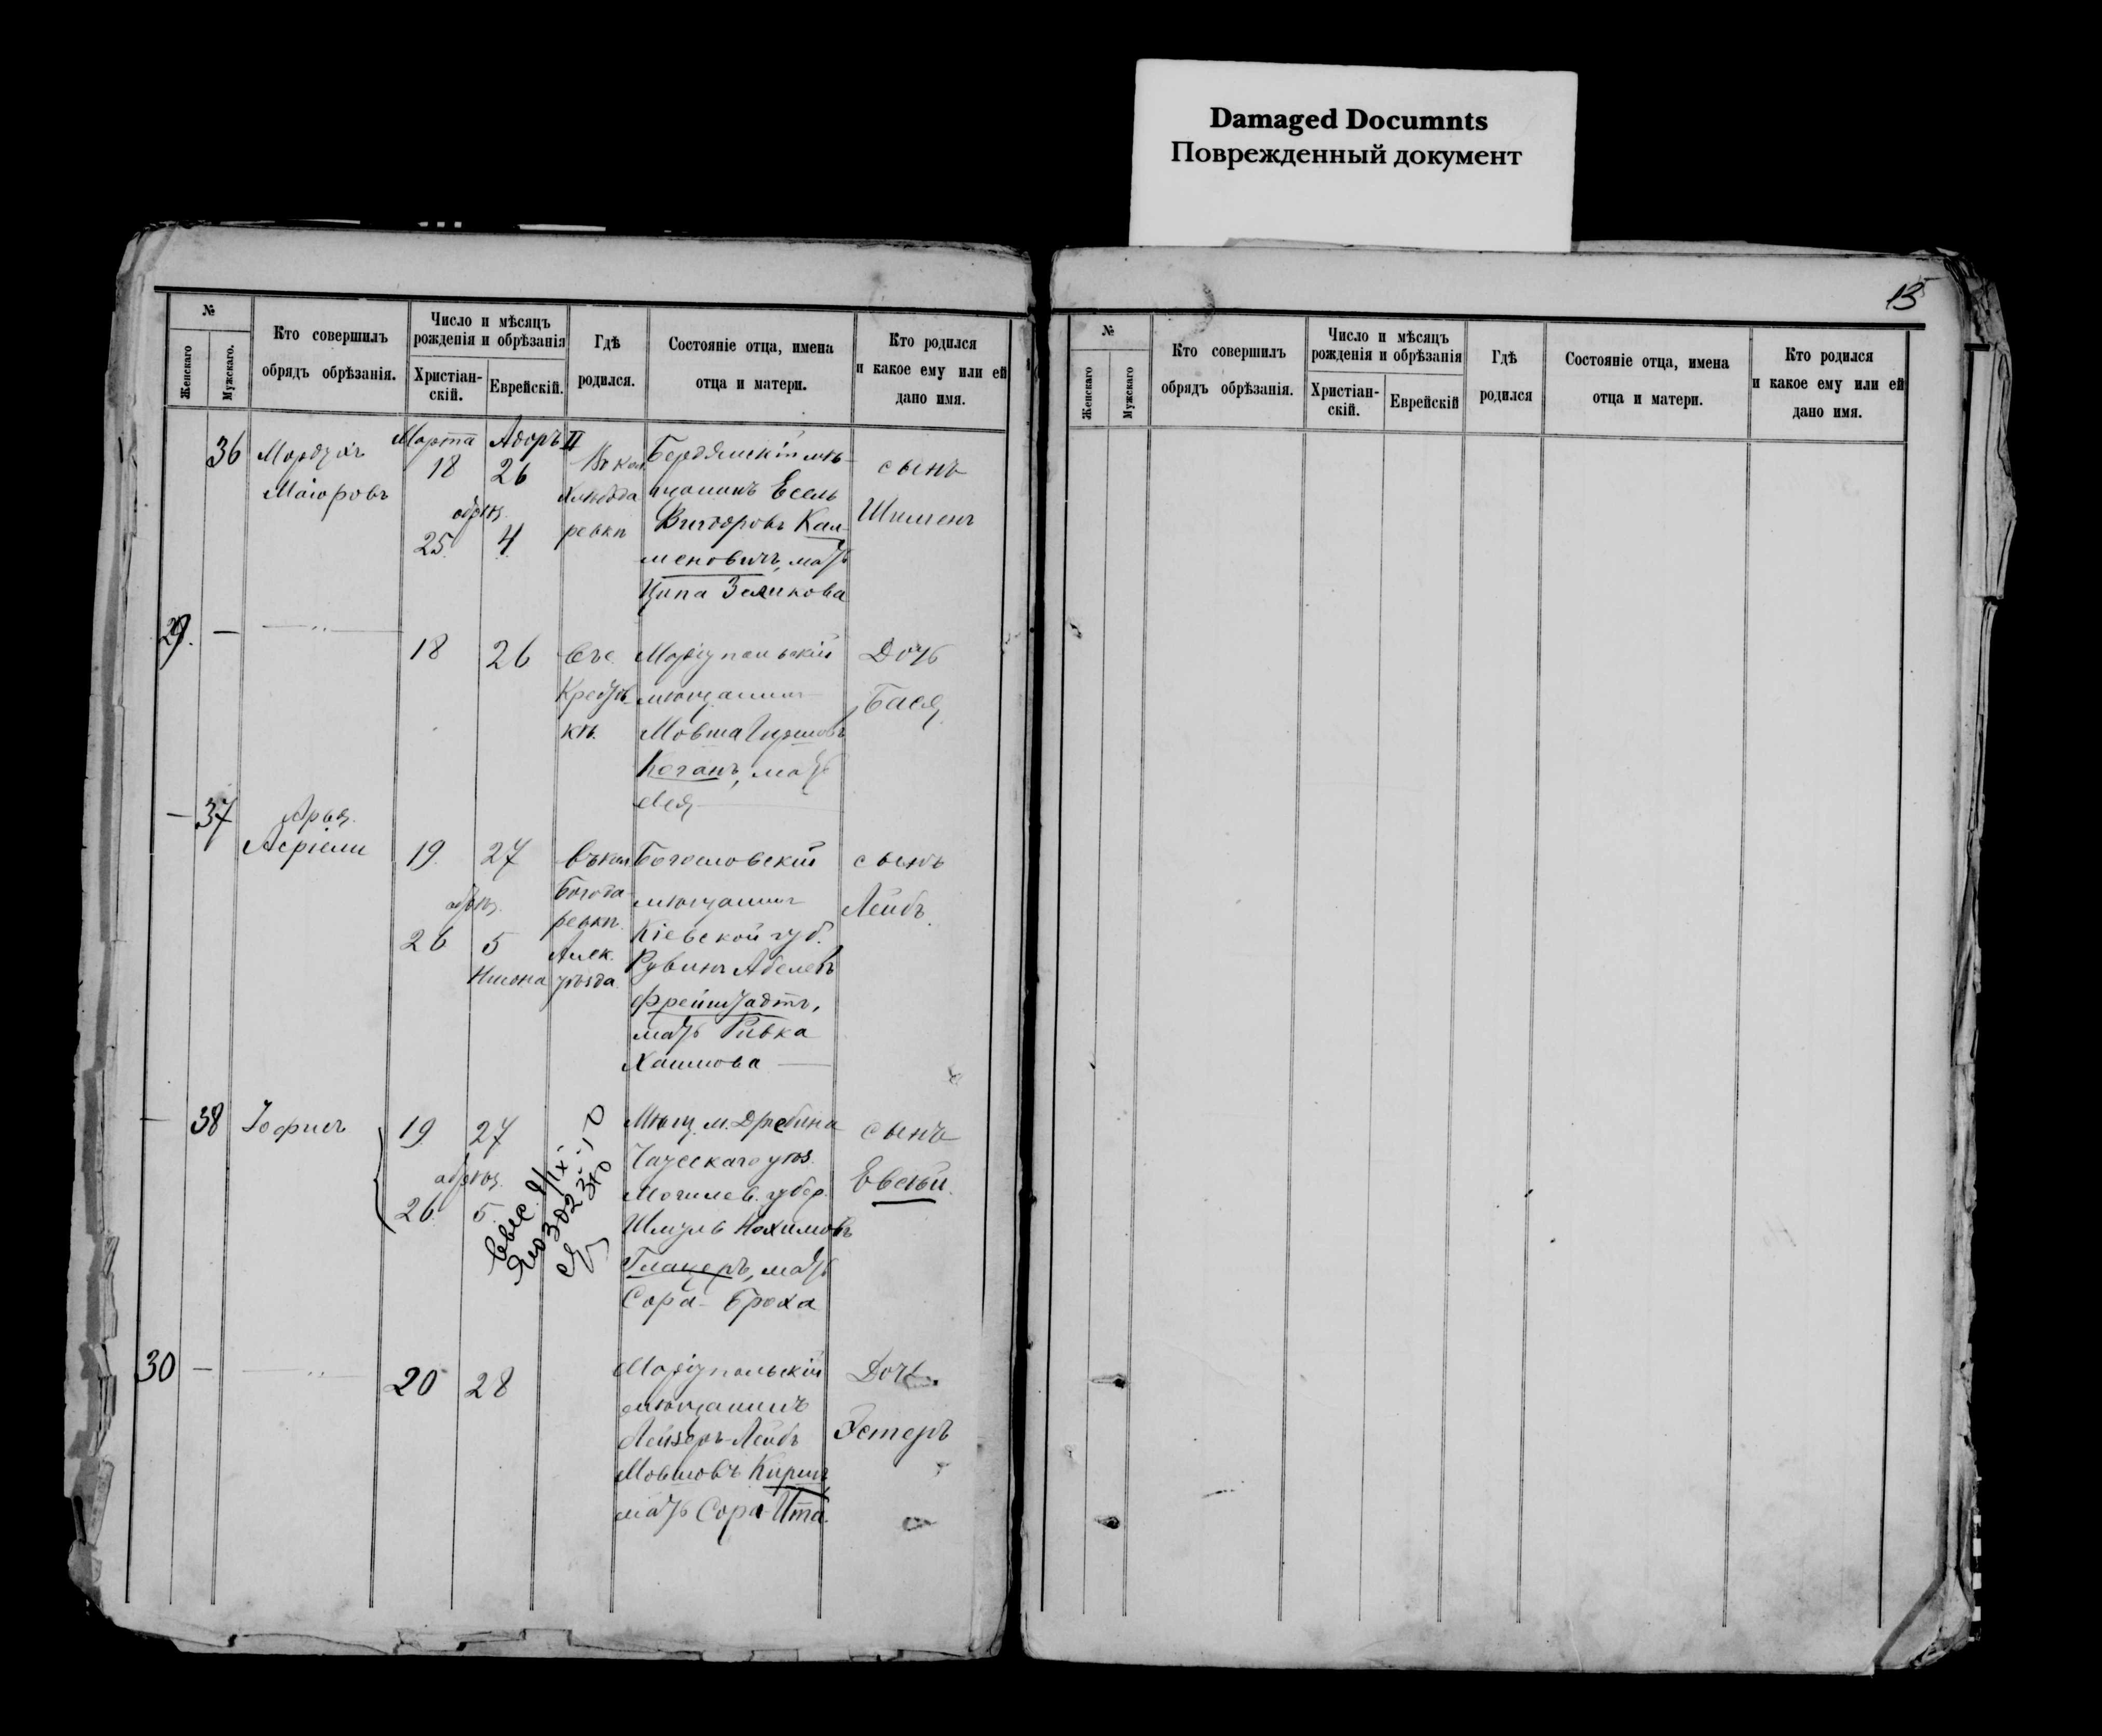 Damaged Documnts
Поврежденный документ
13
№
Женскаго
Мужскаго.
Кто совершилъ
обрядъ обрѣзанія.
Число и мѣсяцъ
рожденія и обрѣзанія
Христіан-
скій.
Еврейскій.
Гдѣ
родился.
Состояніе отца, имена
отца и матери.
Кто родился
и какое ему или ей
дано имя.
36
Мордухъ
Маіоровъ
Марта
18
обрѣз.
25
Адоръ II
26
4
Въ кол
Хлѣбода
ровкѣ
Бердянскій мѣ-
щанинъ Есель
Вигдоровъ Кал-
меновичъ, мать
Ципа Зеликова
сынъ
Шименъ
29.
—
18
26
Въ с.
кѣ.
Маріупольскій
мѣщанинъ
Мовша Гиршовъ
Коганъ, мать
Лея
Дочь
Бася
—
37
Арья
Асріели
19
обрѣз.
26
27
5
Нисона
въ кол
Богода-
ровкѣ
Алек.
уѣзда
Богословскій
мѣщанинъ
Кіевской губ.
Рувинъ Абелевъ
Фрейштадтъ,
мать Ривка
Хаимова
сынъ
Лейбъ
—
38
Іофисъ
19
обрѣз.
26
27
5
Мѣщ. м. Дрибина
Чаусскаго уѣз.
Могилев. губер.
Шмуль Нохимовъ
Глацеръ, мать
Сора-Броха
сынъ
Евсѣй.
30
—
20
28
Маріупольскій
мѣщанинъ
Лейзеръ-Лейбъ
Мовшовъ Киршъ
мать Сора-Ита.
Дочь
Эстеръ
№
Женскаго
Мужскаго
Кто совершилъ
обрядъ обрѣзанія.
Число и мѣсяцъ
рожденія и обрѣзанія
Христіан-
скій.
Еврейскій
Гдѣ
родился
Состояніе отца, имена
отца и матери.
Кто родился
и какое ему или ей
дано имя.